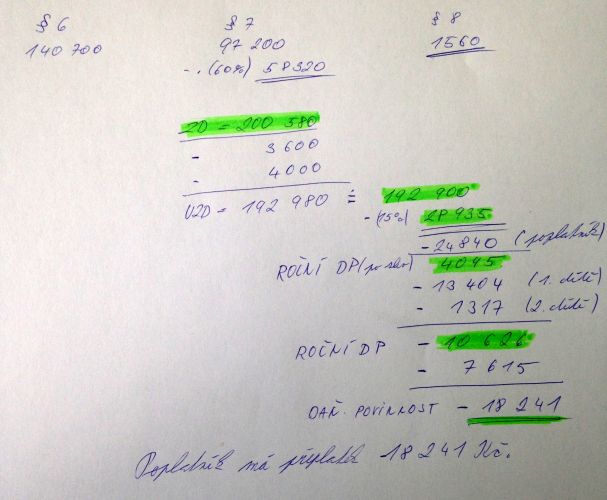 § 6 § 7 § 8
140 700 97 200 1560
- . (60%) 58320
ZD = 200 580
- 3 600
- 4000
UZD = 192 980 ≐ 192 900
- (15%) 28 935
- 24840 (poplatník)
ROČNÍ DP (po slev) 4095
- 13 404 (1. dítě)
- 1317 (2. dítě)
ROČNÍ DP - 10 626
- 7 615
DAŇ. POVINNOST - 18 241
Poplatník má přeplatek 18 241 Kč.